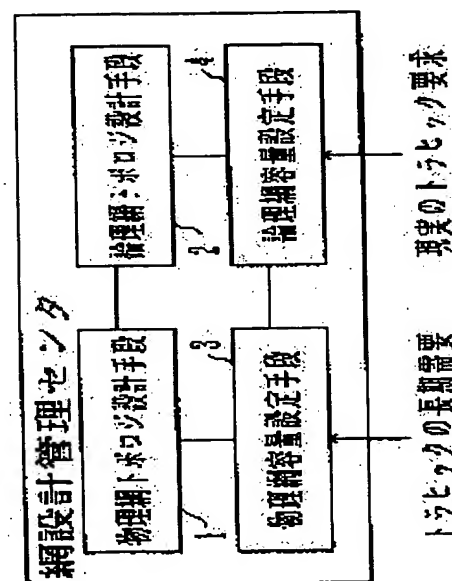 網設計管理センタ
物理網トポロジ設計手段
1
論理網トポロジ設計手段
2
物理網容量設定手段
3
論理網容量設定手段
4
トラヒックの長期需要
現実のトラヒック要求